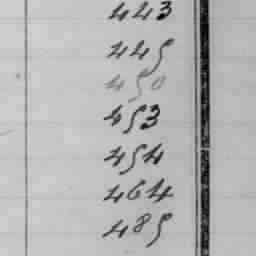 443
445
450
453
454
464
485